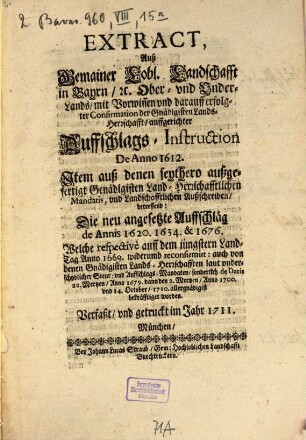 2 Bavar. 960, VIII, 15a
EXTRACT,
Auß
Gemainer Lobl. Landschafft
in Bayrn / ꝛc. Ober- vnd Vnder-
Lands / mit Vorwissen vnd darauff erfolg-
ter Confirmation der Gnädigisten Lands-
Herrschafft / auffgerichter
Auffschlags-Instruction
De Anno 1612.
Item auß denen seythero außge-
fertigt Genädigisten Land-Herrschafftlichen
Mandatis, vnd Landschafftlichen Außschreiben /
betreffend:
Die neu angesetzte Auffschläg
de Annis 1620. 1634. & 1676.
Welche respectivè auff dem jüngstern Land-
Tag Anno 1669. widerumb reconfirmirt: auch von
denen Gnädigisten Lands-Herrschafften laut vnder-
schidlicher Steur- vnd Auffschlags-Mandaten / sonderlich de Datis
22. Mertzen / Anno 1679. dann den 2. Mertzen / Anno 1700.
vnd 14. October / 1710. allergnädigist
bekräfftiget worden.
Verfast / vnd getruckt im Jahr 1711.
München /
Bey Johann Lucas Straub / Gem: Hochloblichen Landschafft
Buechtruckern.
71A